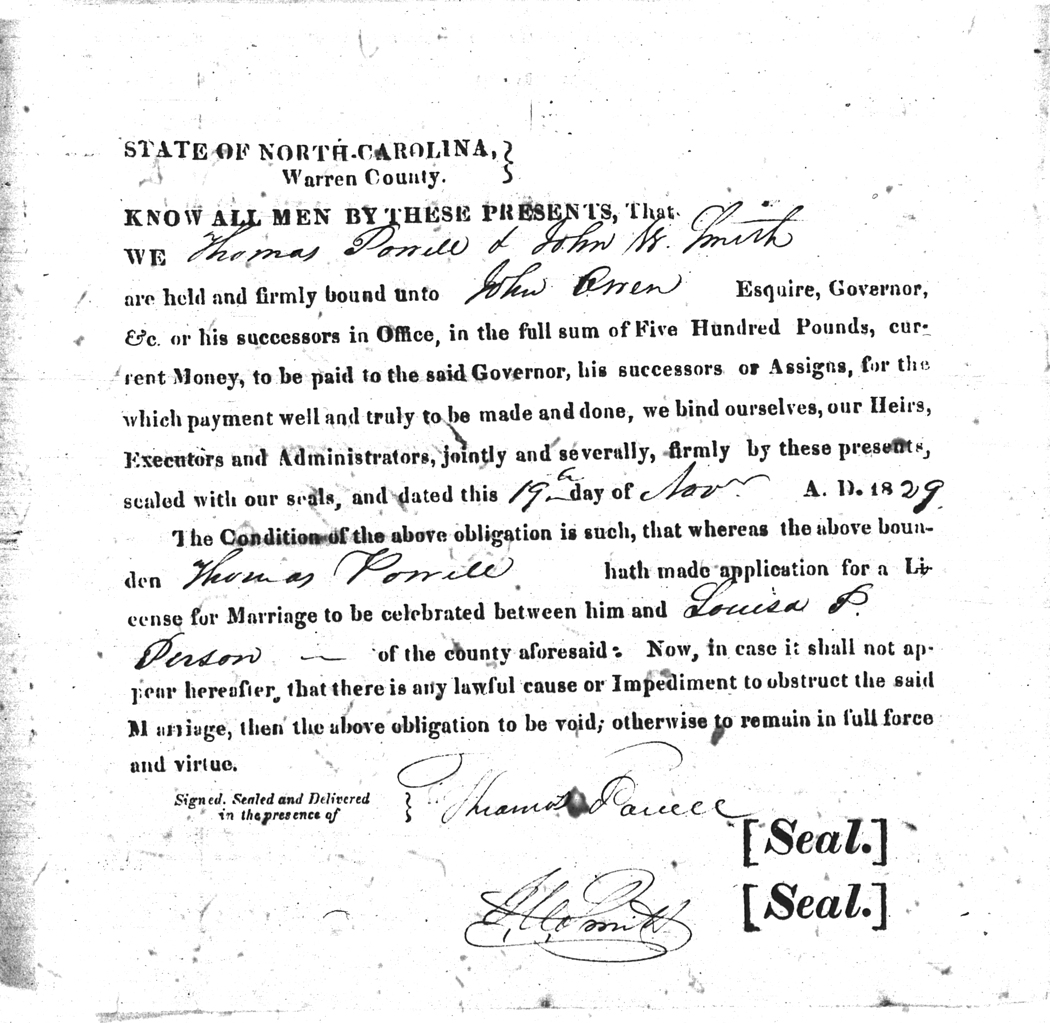 STATE OF NORTH-CAROLINA,
Warren County.
KNOW ALL MEN BY THESE PRESENTS, That
WE Thomas Powell & John W. Smith
are held and firmly bound unto John Owen Esquire, Governor,
&c. or his successors in Office, in the full sum of Five Hundred Pounds, cur-
rent Money, to be paid to the said Governor, his successors or Assigns, for the
which payment well and truly to be made and done, we bind ourselves, our Heirs,
Executors and Administrators, jointly and severally, firmly by these presents,
sealed with our seals, and dated this 19th day of Nov A. D. 1829
The Condition of the above obligation is such, that whereas the above boun-
den Thomas Powell hath made application for a Li-
cense for Marriage to be celebrated between him and Louisa P.
Person — of the county aforesaid: Now, in case it shall not ap-
pear hereafter, that there is any lawful cause or Impediment to obstruct the said
Marriage, then the above obligation to be void; otherwise to remain in full force
and virtue.
Signed, Sealed and Delivered
in the presence of
Thomas Powell
[Seal.]
Smith
[Seal.]